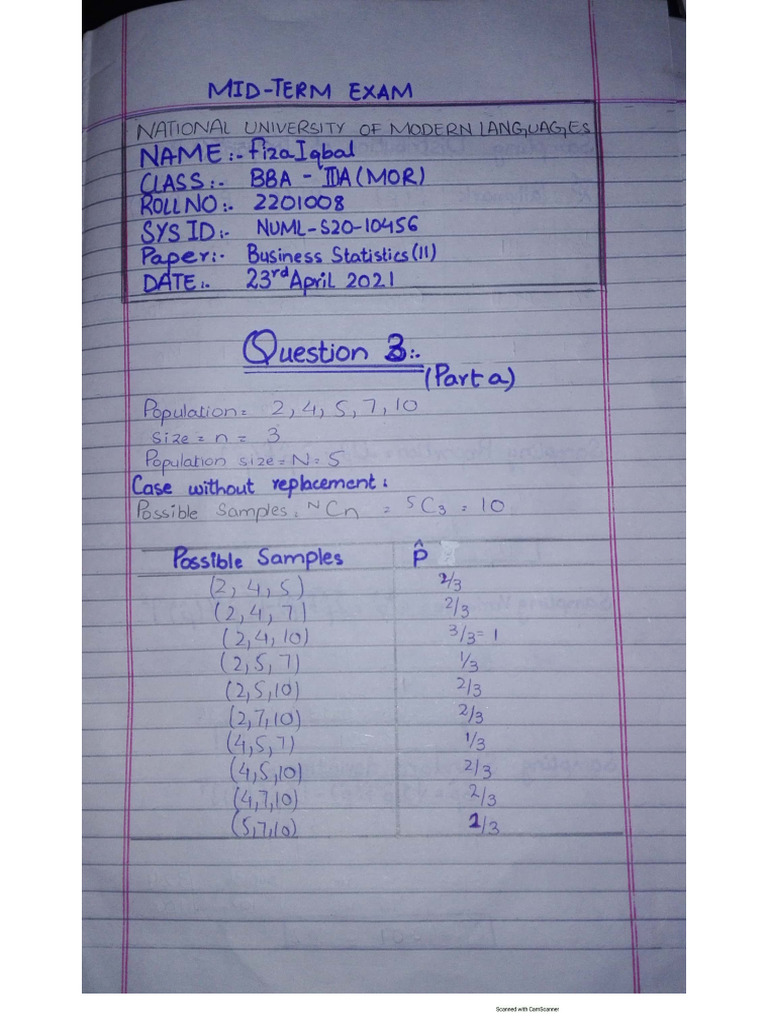 MID-TERM EXAM
NATIONAL UNIVERSITY OF MODERN LANGUAGES
NAME:- Fiza Iqbal
CLASS:- BBA - IIA (MOR)
ROLL NO:- 2201008
SYS ID:- NUML-S20-10456
Paper:- Business Statistics (II)
DATE:- 23rd April 2021
Question 3:-
(Part a)
Population= 2, 4, 5, 7, 10
size = n = 3
Population size = N = 5
Case without replacement:
Possible Samples: ᴺCn = ⁵C₃ = 10
Possible Samples P̂
(2, 4, 5) 2/3
(2, 4, 7) 2/3
(2, 4, 10) 3/3 = 1
(2, 5, 7) 1/3
(2, 5, 10) 2/3
(2, 7, 10) 2/3
(4, 5, 7) 1/3
(4, 5, 10) 2/3
(4, 7, 10) 2/3
(5, 7, 10) 1/3
Scanned with CamScanner